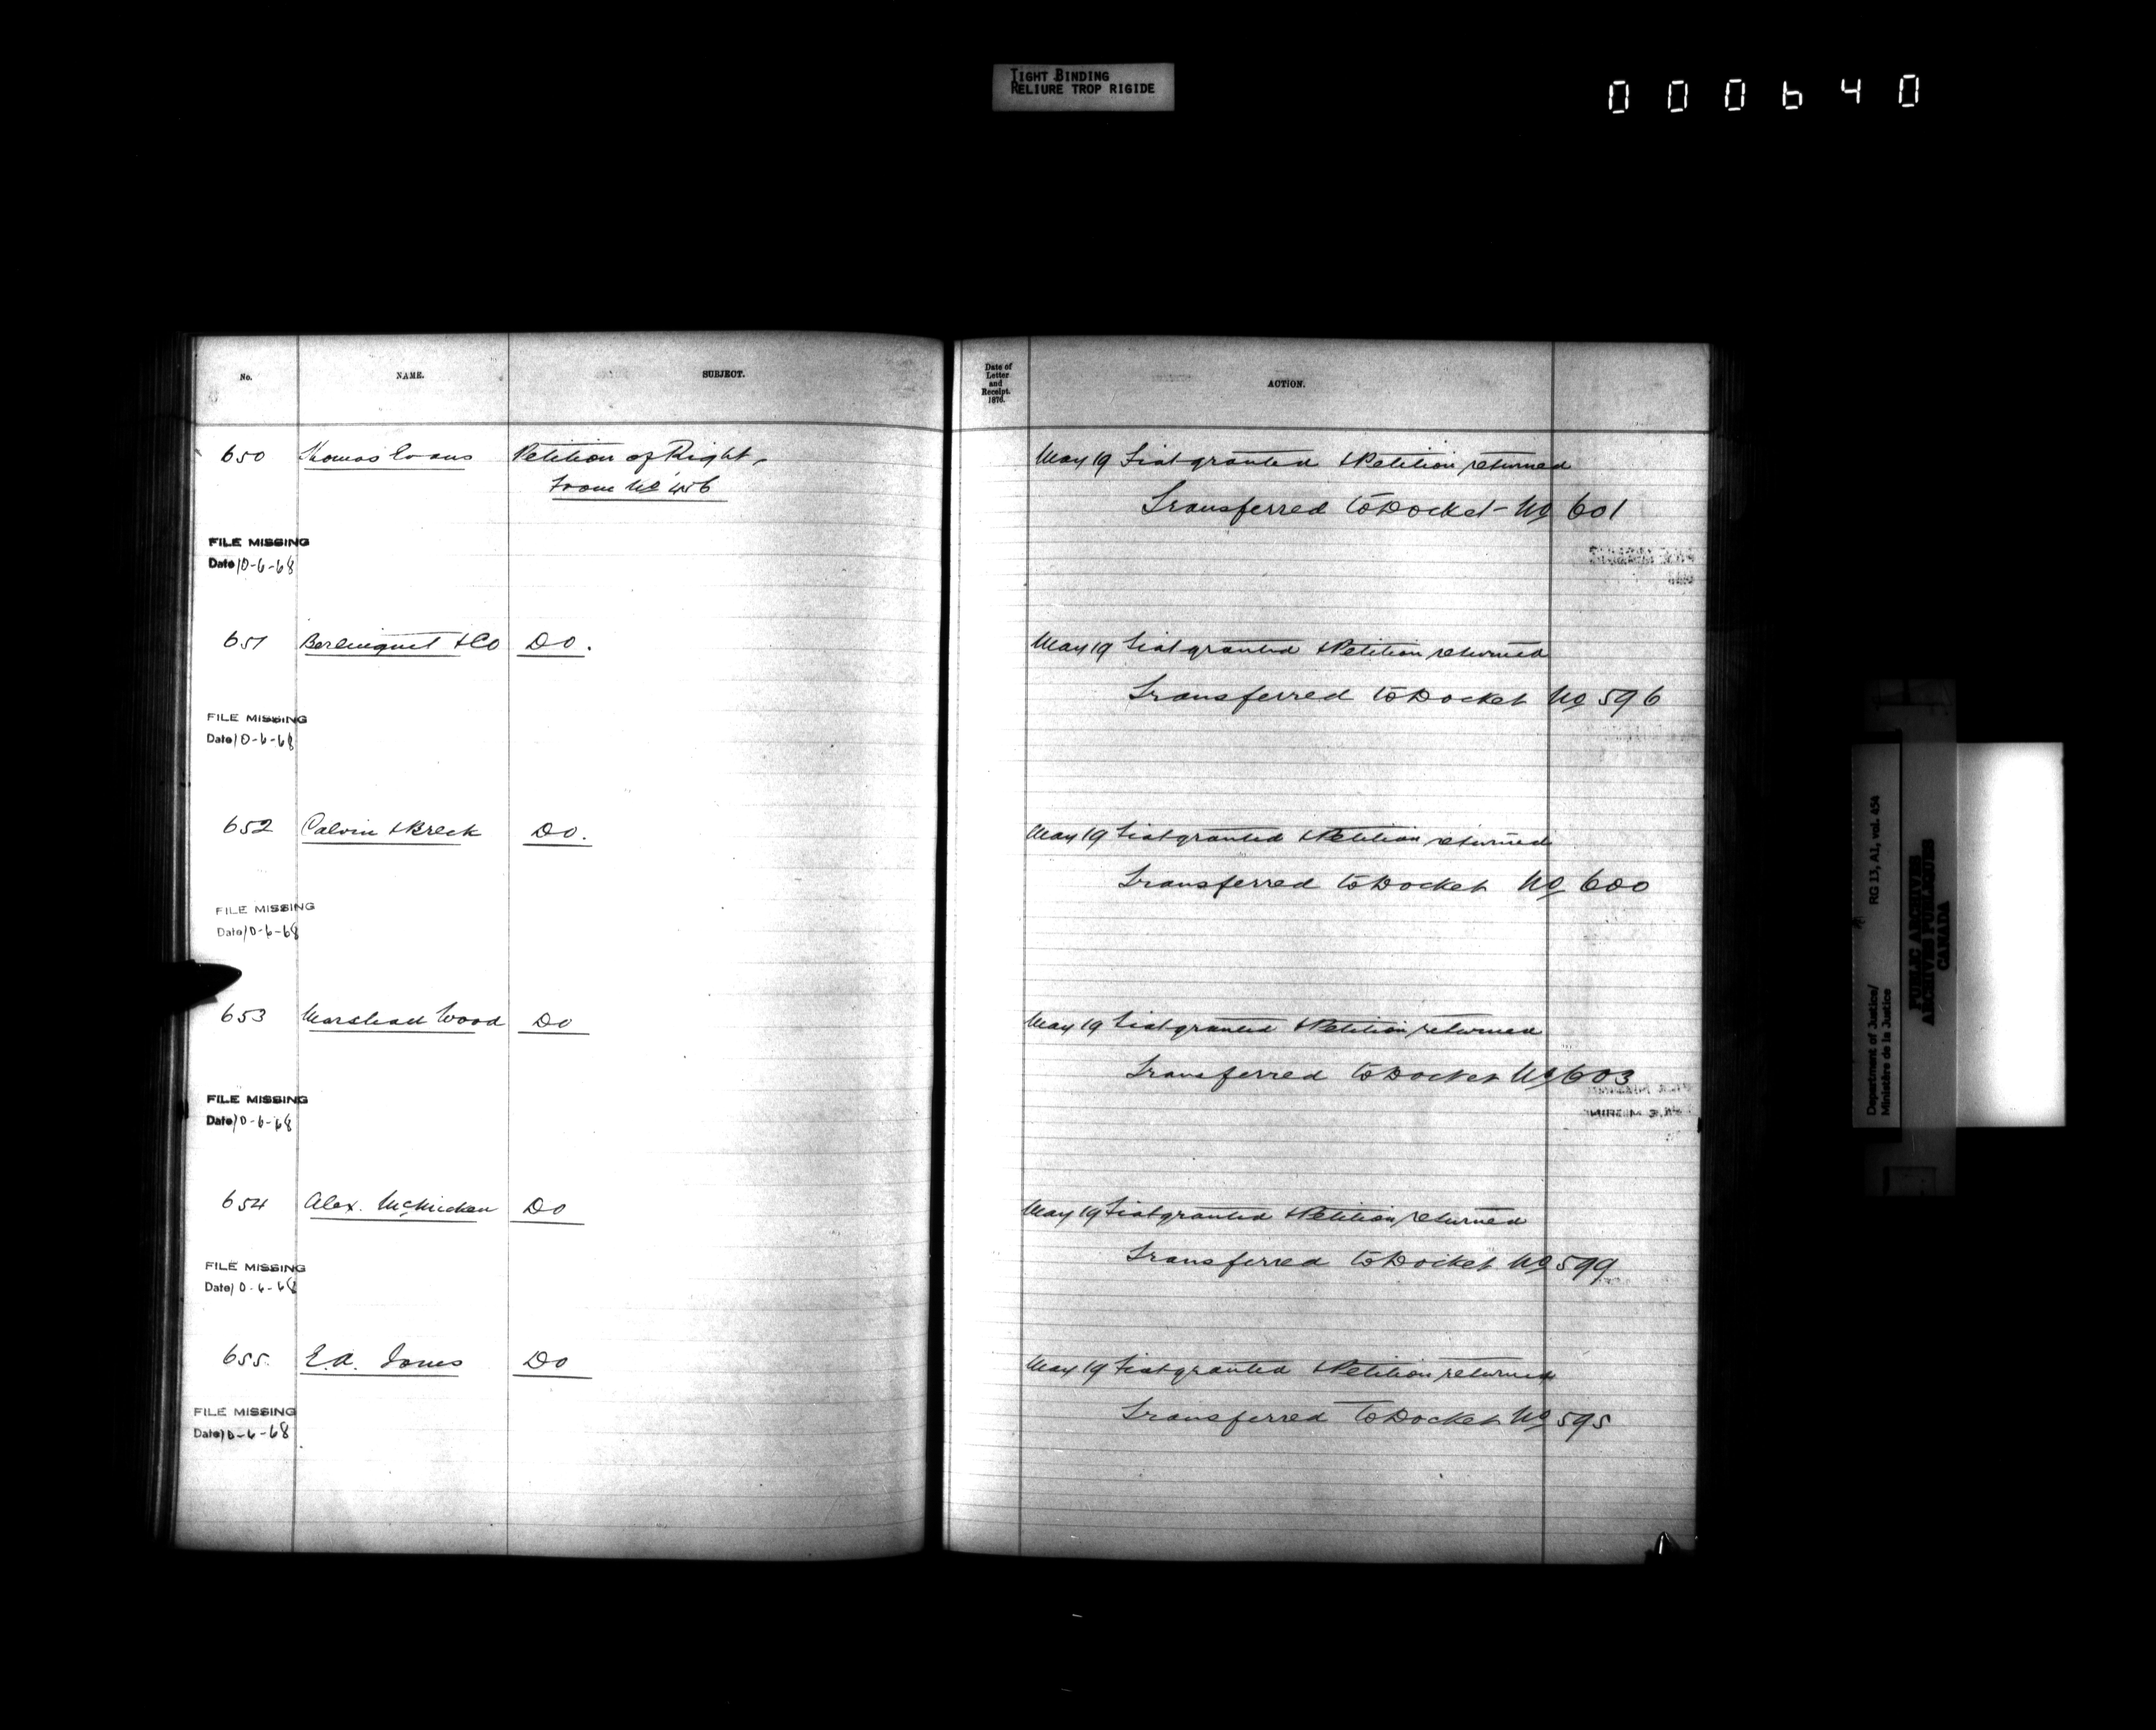 TIGHT BINDING
RELIURE TROP RIGIDE
000640
No. NAME. SUBJECT.
Date of
Letter
and
Receipt.
1876.
ACTION.
650 Thomas Evans Petition of Right, May 19 Fiat granted & Petition returned
from No 456
Transferred to Docket - No 601
FILE MISSING
Date 10-6-68
651 Berlinguet & Co Do. May 19 Fiat granted & Petition returned
Transferred to Docket No 596
FILE MISSING
Date 10-6-68
652 Calvin & Breck Do. May 19 Fiat granted & Petition returned
Transferred to Docket No 600
FILE MISSING
Date 10-6-68
653 Marshall Wood Do May 19 Fiat granted & Petition returned
Transferred to Docket No 603
FILE MISSING
Date 10-6-68
654 Alex. McMicken Do May 19 Fiat granted & Petition returned
Transferred to Docket No 599
FILE MISSING
Date 10-6-68
655. E.A. Jones Do May 19 Fiat granted & Petition returned
Transferred to Docket No 595
FILE MISSING
Date 10-6-68
Department of Justice/ RG 13, A1, vol. 454
Ministère de la Justice
PUBLIC ARCHIVES
ARCHIVES PUBLIQUES
CANADA